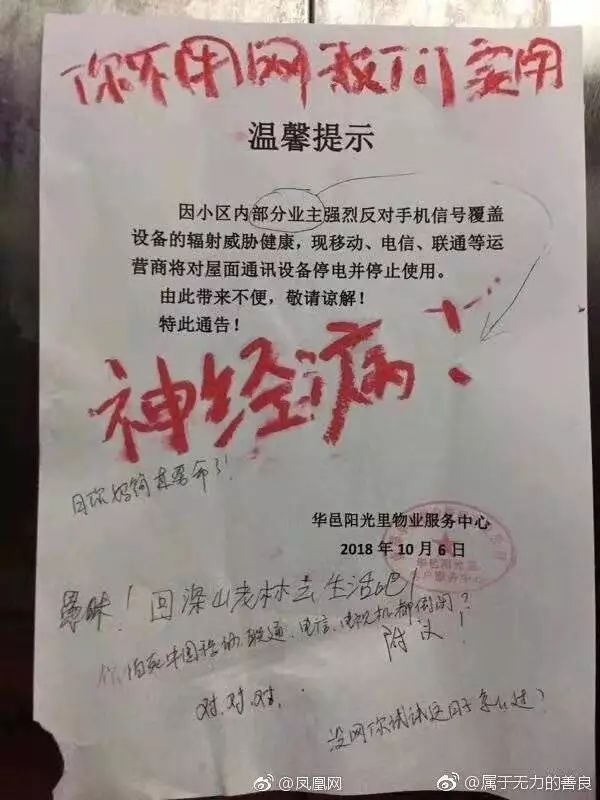 你不用网我们实用
温馨提示
因小区内部分业主强烈反对手机信号覆盖
设备的辐射威胁健康，现移动、电信、联通等运
营商将对屋面通讯设备停电并停止使用。
由此带来不便，敬请谅解！
特此通告！
神经病！
华邑阳光里物业服务中心
2018 年 10 月 6 日
愚昧！回深山老林去生活吧！
你怕死中国移动、联通、电信、电视机都倒闭？
附议！
对.对.对.
没网你试试这日子怎么过？
凤凰网
@属于无力的善良